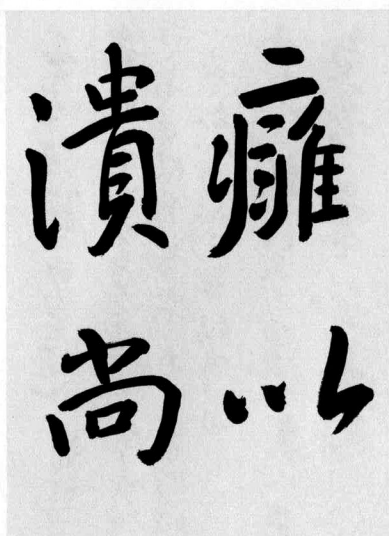 癰以
潰尚